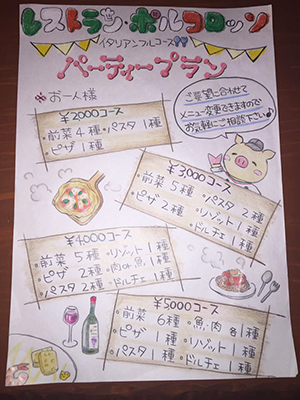 レストラン・ポルコロッソ
イタリアンフルコース!!
パーティープラン
お一人様
¥2000コース
・前菜4種・パスタ1種
・ピザ1種
ご要望に合わせて
メニュー変更できますので
お気軽にご相談下さい♪
¥3000コース
・前菜5種・パスタ2種
・ピザ2種・リゾット1種
・ドルチェ1種
¥4000コース
・前菜5種・リゾット1種
・ピザ2種・肉or魚1種
・パスタ2種・ドルチェ1種
¥5000コース
・前菜6種・魚、肉各1種
・ピザ1種・リゾット1種
・パスタ1種・ドルチェ1種